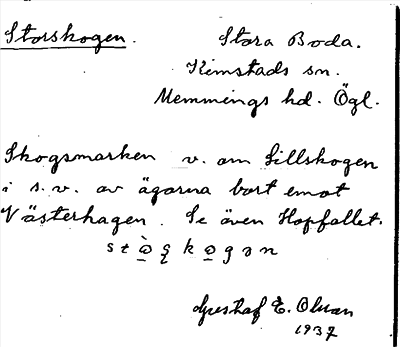 Storskogen.
Stora Boda.
Kimstads sn.
Memmings hd. Ögl.
Skogsmarken v. om Lillskogen
i s.v. av ägorna bort emot
Västerhagen. Se även Hopfallet.
Gustaf E. Olsson
1937